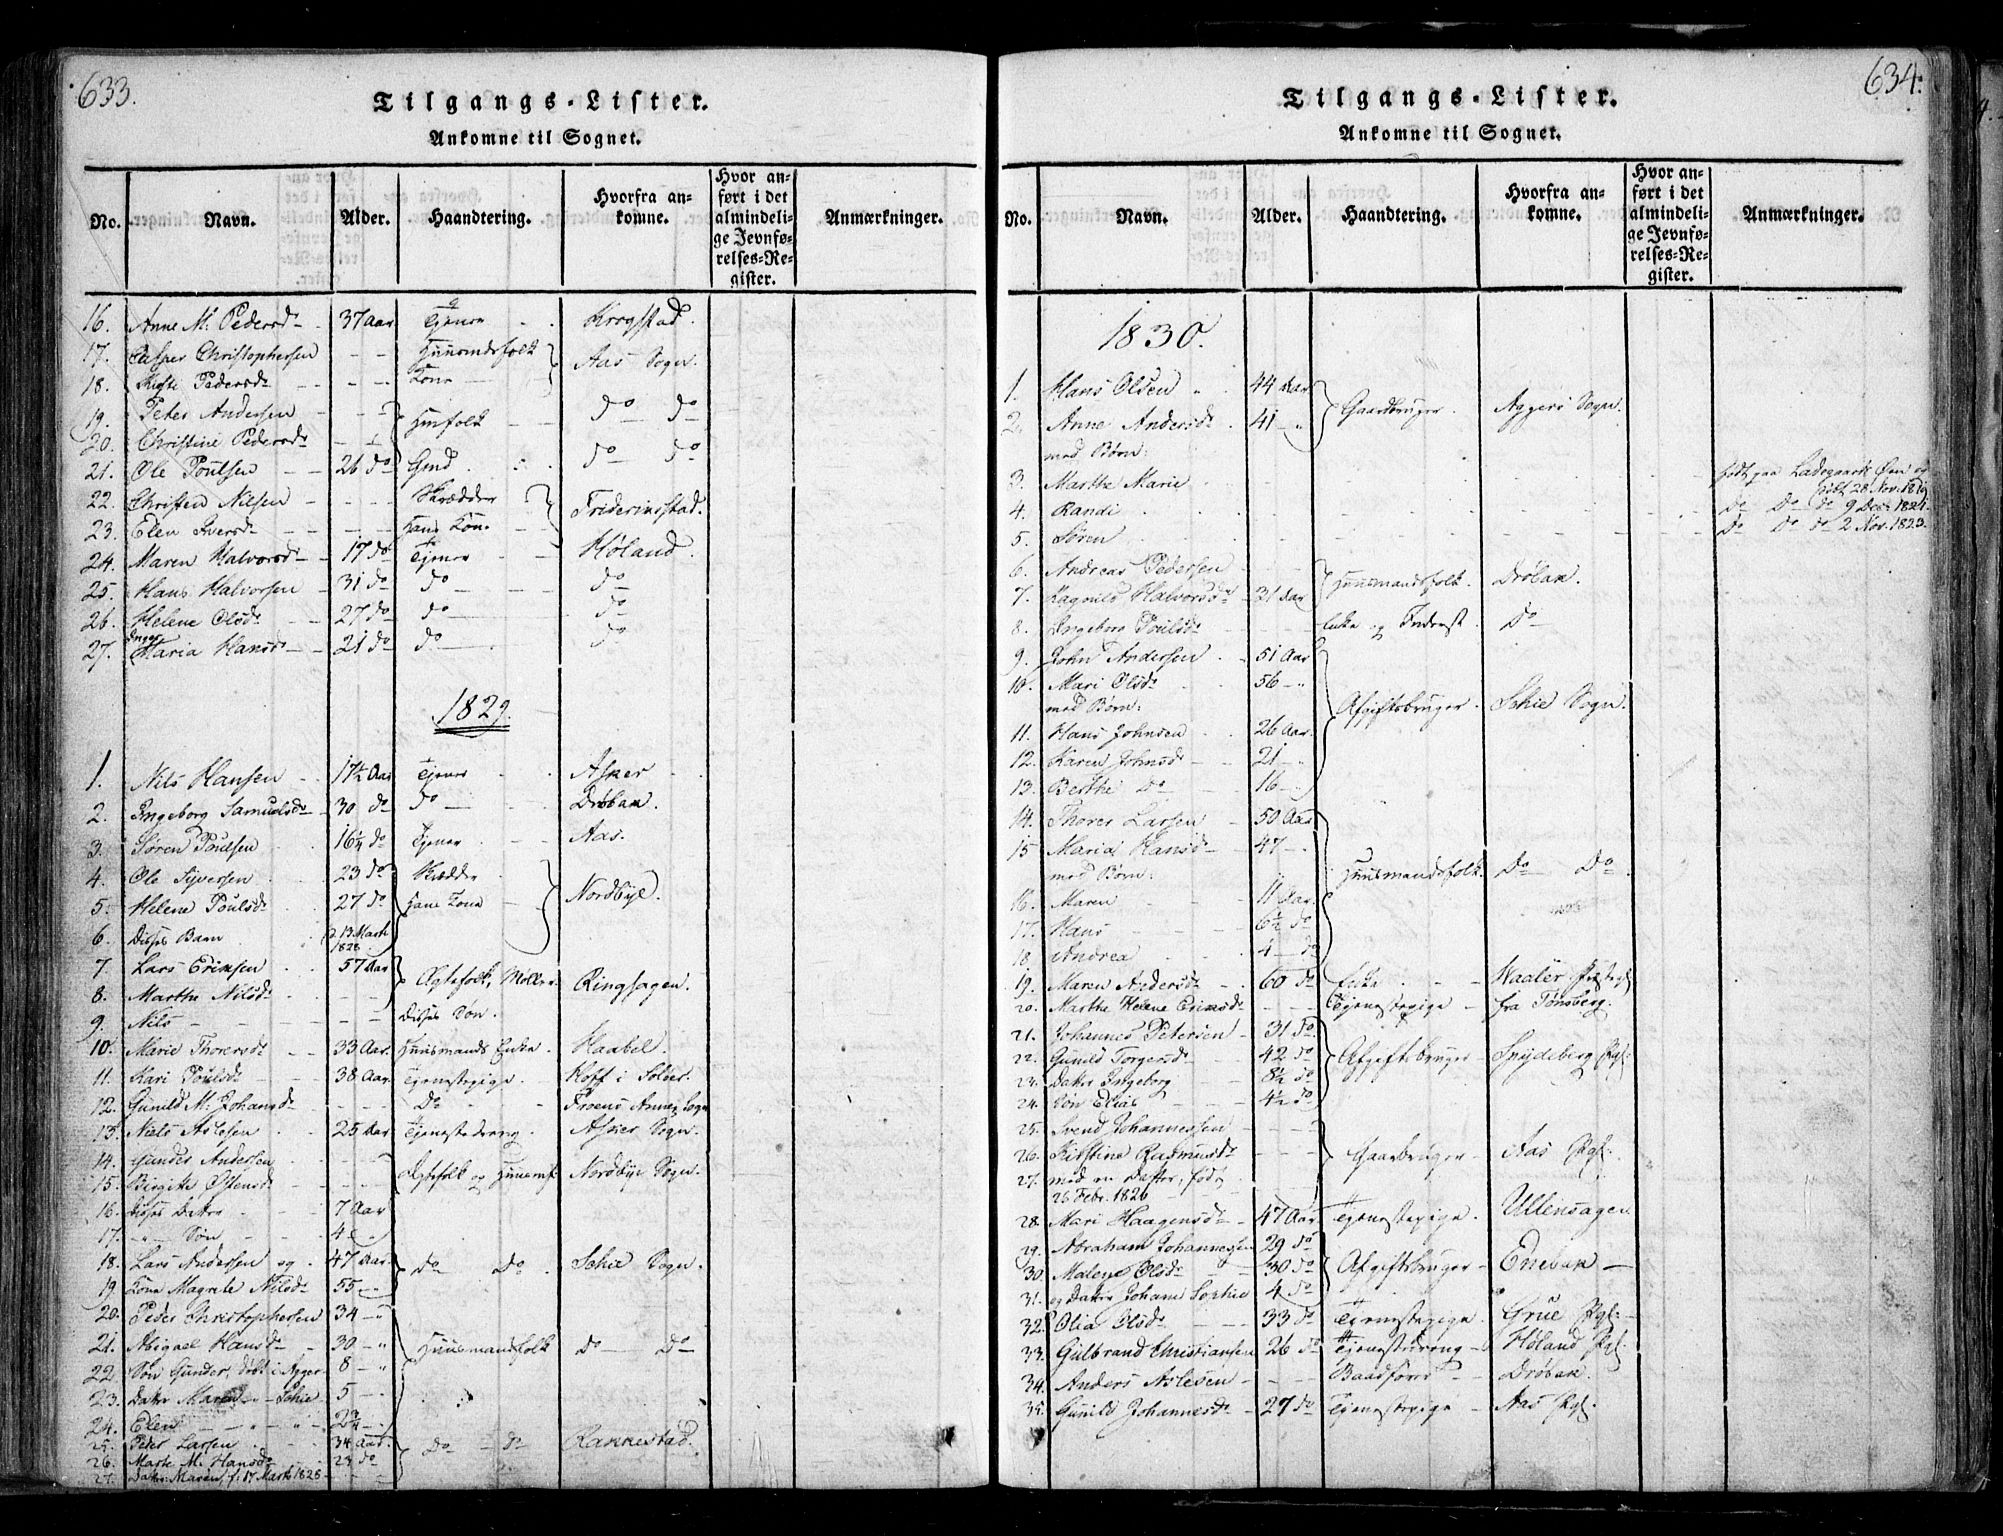 633.
Tilgangs-Lister.
Ankomne til Sognet.
No. Navn. Alder. Haandtering. Hvorfra ankomne. Hvor anført i det almindelige Jevnførelses-Register. Anmærkninger.
16. Anne M: Pedersd 37 Aar Tjener Krogstad.
17. Casper Christophersen Huusmdsfolk Aas Sogn.
18. Kiste Pedersd Kone
19. Peter Andersen Husfolk do do
20. Christine Pedersd
21. Ole Poulsen 26 do Gmd do do
22. Christen Nilsen Skrædder Friderichstad.
23. Elen Iversd Hans Kone
24. Maren Halvorsd 17 do Tjener Høland.
25. Hans Halvorsen 31 do do do
26. Helene Olsd 27 do do do
27. Inger Maria Hansd 21 do do do
1829.
1. Nils Hansen 17½ Aar Tjener Asker
2. Ingeborg Samuelsd 30 do do Drøbak.
3. Søren Poulsen 16¼ do Tjener Aas.
4. Ole Syversen 23 do Skrædder Nordbye.
5. Helene Poulsd 27 do Hans Kone
6. Disses Barn f. 13 Marts 1828.
7. Lars Erichsen 57 Aar Ægtefolk, Møller Ringsagen.
8. Marthe Nilsd
9. Nils Disses Søn.
10. Marie Thoresd 33 Aar. Huusmands Enke Haabel.
11. Kari Poulsd 38 Aar. Tjenestepige. Koff i Soldier.
12. Gunild M: Johansd Do Froens Annex Sogn
13. Niels Aslesen 25 Aar Tjenestedreng. Asker Sogn.
14. Gunder Andersen Ægtefolk og Huusmf. Nordbye Sogn.
15. Birgitte Østensd
16. disses Datter 7 Aar
17. -"- Søn 4
18. Lars Andersen og 47 Aar. Do Do Schie Sogn.
19. Kone Magrete Nilsd 55 -
20. Peder Christophersen 34 - " Huusmandsfolk Do Do
21. Abigael Hansd 30 - "
22. Søn Gunder, døbt i Agger 8 - "
23. Datter Maren - Schie 5 -
24. Elen - " - " 2¾ -
25. Peter Larsen 34 Aar. Do - do Rakkestad.
26. Marte M. Hansd 23 do
27. Datter Maren, f: 17 Marts 1828
634.
Tilgangs-Lister.
Ankomne til Sognet.
No. Navn. Alder. Haandtering. Hvorfra ankomne. Hvor anført i det almindelige Jevnførelses-Register. Anmærkninger.
1830.
1. Hans Olsen 44 Aar Gaardbruger. Aggers Sogn.
2. Anne Andersd 41 - "
med Børn:
3. Marthe Marie født paa Ladegaards Øen og døbt 28 Nov. 1819
4. Randi Do Do do 9 Dec. 1821.
5. Søren Do do do 2 Nov. 1823.
6. Andreas Pedersen Huusmandsfolk. Drøbak.
7. Ragnild Halvorsd 31 Aar
8. Ingeborg Poulsd Enke og Inderst. Do
9. John Andersen 51 Aar Afgiftsbruger. Schie Sogn.
10. Mari Olsd 56 - "
med Børn:
11. Hans Johnsen 26 Aar.
12. Karen Johnsd 21 -
13. Berthe Do 16 -
14. Thorer Larsen 50 Aar Huusmandsfolk. Do Do
15 Maria Hansd 47 -
med Børn:
16. Maren 11 Aar.
17. Hans 6½ do
18 Andrea 4 do
19. Maren Andersd 60 do Enke Waaler Præstegl
20. Marthe Helene Erichsd Tjenestepige fra Tønsberg.
21. Johannes Petersen 31 do Afgiftsbruger Snydeberg Pgl:
22. Gunild Torgersd 42 do
23. Datter Ingeborg 8½ do
24. Søn Elias 4½ do
25. Svend Johannessen Gaarbruger Aas Pgl:
26. Kirstine Rasmusd
27. med en Datter, født
26 Febr. 1826
28. Mari Haagensd 47 Aar Tjenestepige. Ullensager
29. Abraham Johannessen 29 do Afgiftsbruger Enebak
30. Malene Olsd 30 do
31. og Datter Johane Sophie 4 do
32. Olia Olsd 33 do Tjenestepige. Grue Pgl:
33. Gulbrand Christiansen 26 do Tjenestedreng Høland Pgl.
34. Anders Aslesen Baadfører Drøbak.
35. Gunild Johannesd 27 do Tjenestepige Aas Pgl.